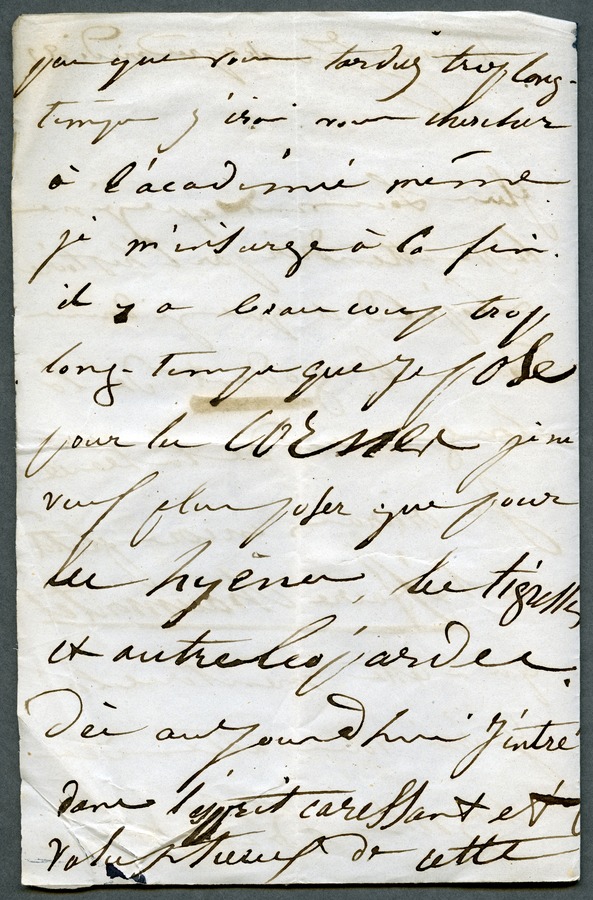 peu que vous tardiez trop long-
temps j'irai vous chercher
à l'académie même
je m'insurge à la fin.
il y a beaucoup trop
long-temps que je pose
pour les je ne
veux plus poser que pour
les hyènes, les tigresses
et autres léopardes.
Dès aujourdhui j'entre
dans l'esprit caressant et
voluptueux de cette